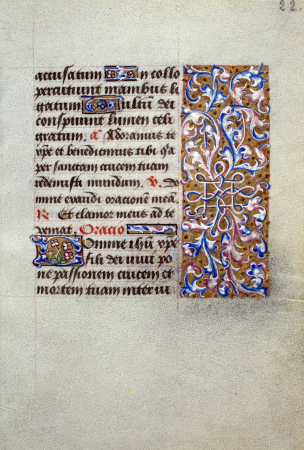 22.
accusatum In collo
percutiunt manibus li
gatum Vultum dei
conspuunt lumen celi
gratum. A Adoramus te
xpe et benedicimus tibi q'a
per sanctam crucem tuam
redemisti mundum. V. Do
mine exaudi orationem meā.
R Et clamor meus ad te
veniat. Oracio
Domine ihū xpe
fili dei vivi po
ne passionem crucem et
mortem tuam inter iu